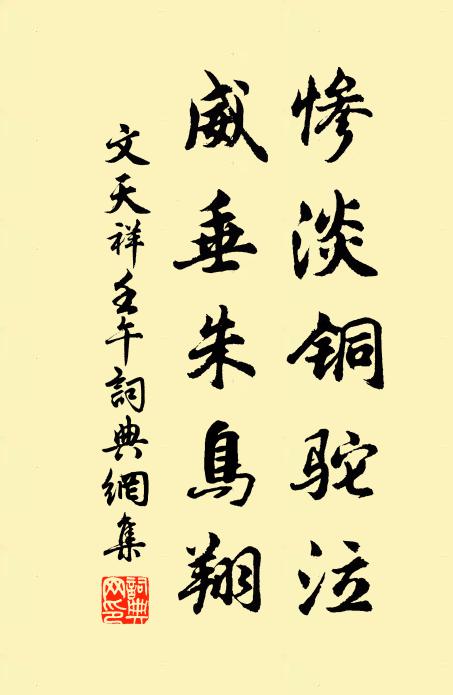 惨淡铜驼泣
威垂朱鳥翔
文天祥壬午詞典網集
詞典網印